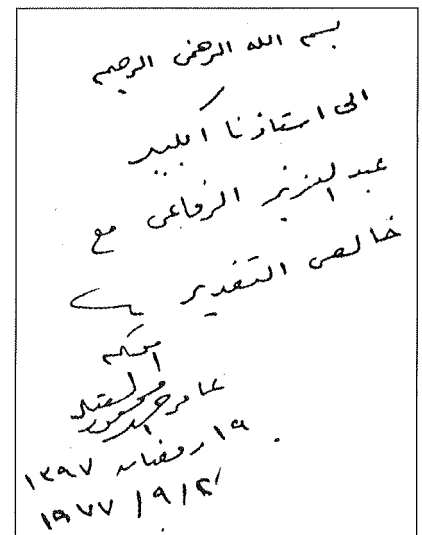 بسم الله الرحمن الرحيم
الى استاذنا الكبير
عبد العزيز الرفاعى مع
خالص التقدير
عامر
١٩ رمضان ١٣٩٧
١٩٧٧/٩/٢